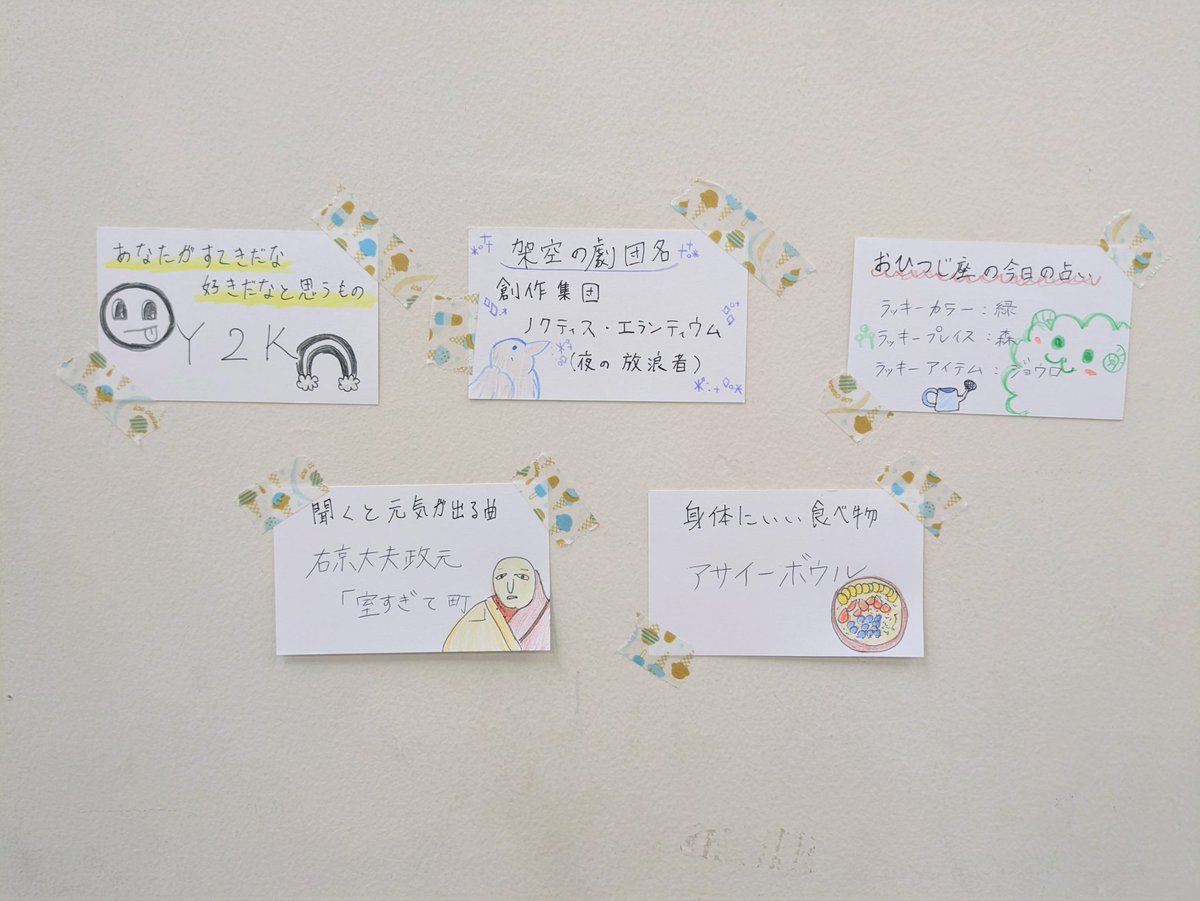 あなたがすてきだな
好きだなと思うもの
Y2K
架空の劇団名
創作集団
ノクティス・エランティウム
(夜の放浪者)
おひつじ座の今日の占い
ラッキーカラー:緑
ラッキープレイス:森
ラッキーアイテム:ジョウロ
聞くと元気が出る曲
右京大夫政元
「室すぎて町
身体にいい食べ物
アサイーボウル